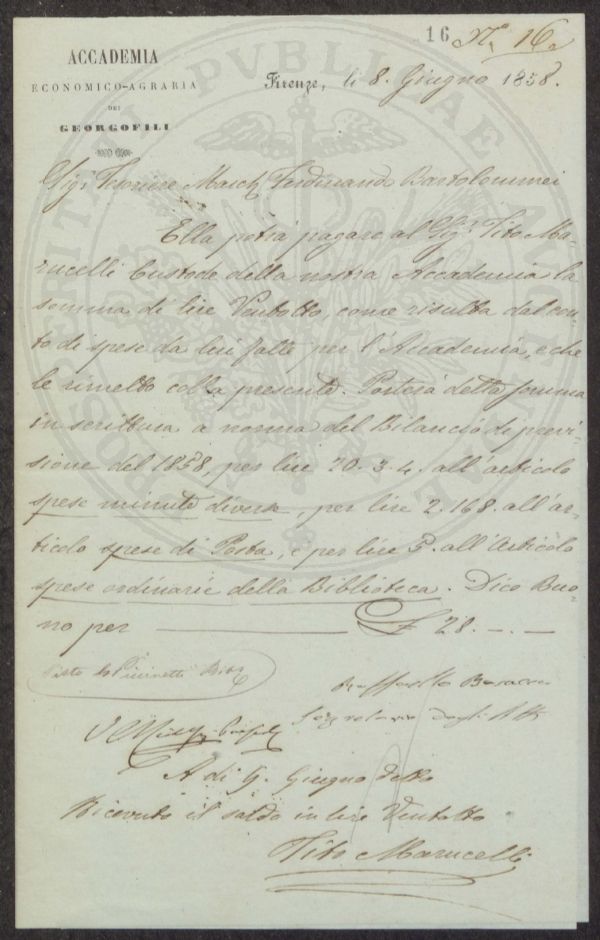 16 N.° 16.
ACCADEMIA
ECONOMICO-AGRARIA
DEI
GEORGOFILI
Firenze, li 8. Giugno 1858.
Sig: Tesoriere March. Ferdinando Bartolommei
Ella potrà pagare al Sig.r Tito Ma-
rucelli Custode della nostra Accademia la
somma di lire Ventotto, come risulta dal con-
to di spese da lui fatte per l'Accademia, e che
le rimetto colla presente. Porterà detta somma
in scrittura a norma del Bilancio di previ-
sione del 1858, per lire 20. 3. 4. all'articolo
spese minute diverse, per lire 2. 16 8. all'ar-
ticolo spese di Posta, e per lire 5. all'Articolo
spese ordinarie della Biblioteca. Dico Buo-
no per £ 28. -. -
Visto
Segretario degli Atti
A di 9. Giugno detto
Ricevuto il saldo in lire Ventotto
Tito Marucelli